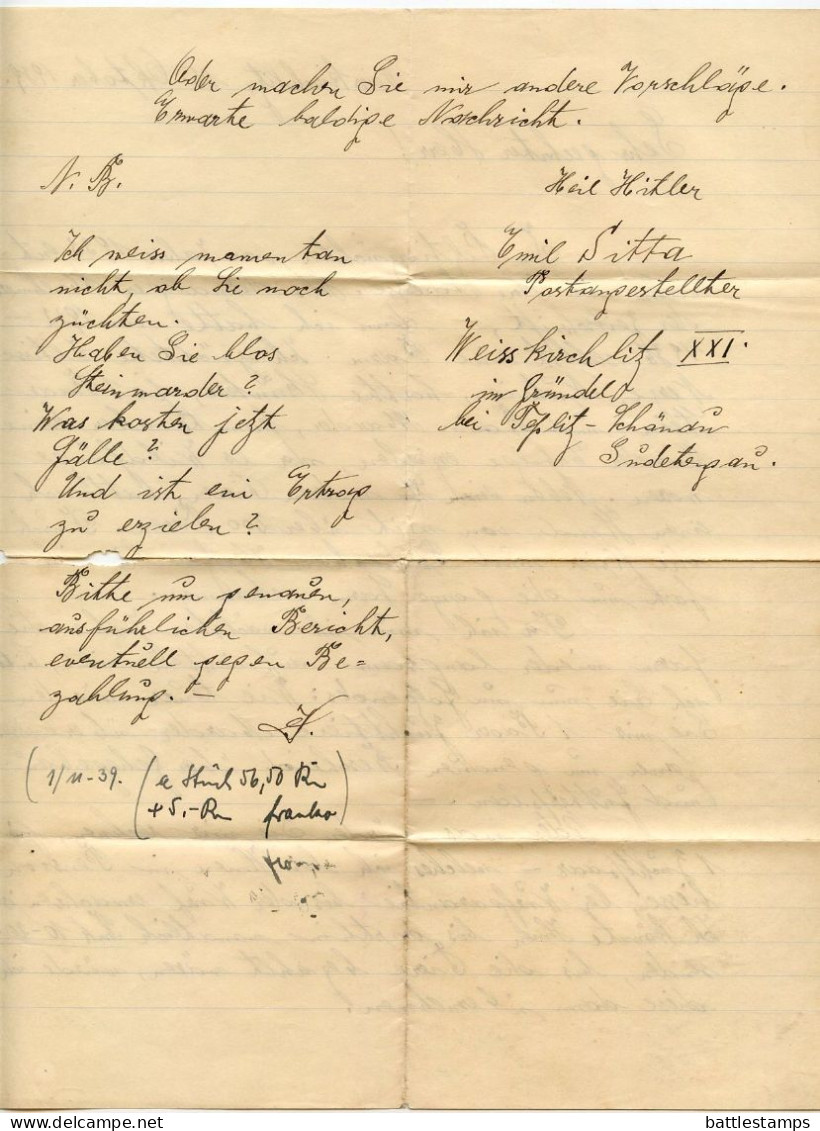 Oder machen Sie mir andere Vorschläge.
Erwarte baldige Nachricht.
N. B.
Heil Hitler
Emil Sitta
Postangestellter
Weisskirchlitz XXI.
im Gründel
bei Teplitz-Schönau
Sudetengau.
Ich weiss momentan
nicht, ob Sie noch
züchten.
Haben Sie blos
Steinmarder?
Was kosten jetzt
Fälle?
Und ist ein Ertrag
zu erzielen?
Bitte um genauen,
ausführlichen Bericht,
eventuell gegen Be=
zahlung. –
(1/11-39. (a Stück 56,50 Rm
+ 5,- Rm franko)
battlestamps